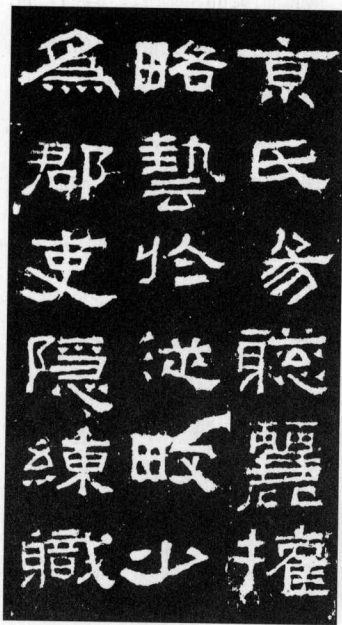 京氏易聰麗權
略藝於從畋少
爲郡吏隱練職